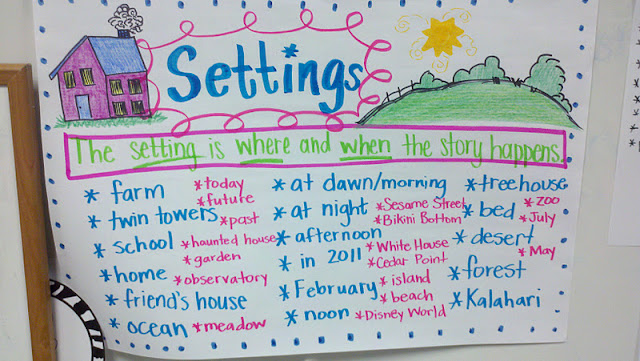 Settings
The setting is where and when the story happens.
* farm
* today
* future
* twin towers
* past
* school
* haunted house
* garden
* home
* observatory
* friend's house
* ocean
* meadow
* at dawn/morning
* at night
* Sesame Street
* Bikini Bottom
* afternoon
* in 2011
* White House
* Cedar Point
* February
* island
* beach
* noon
* Disney World
* treehouse
* bed
* zoo
* July
* desert
* May
* forest
* Kalahari